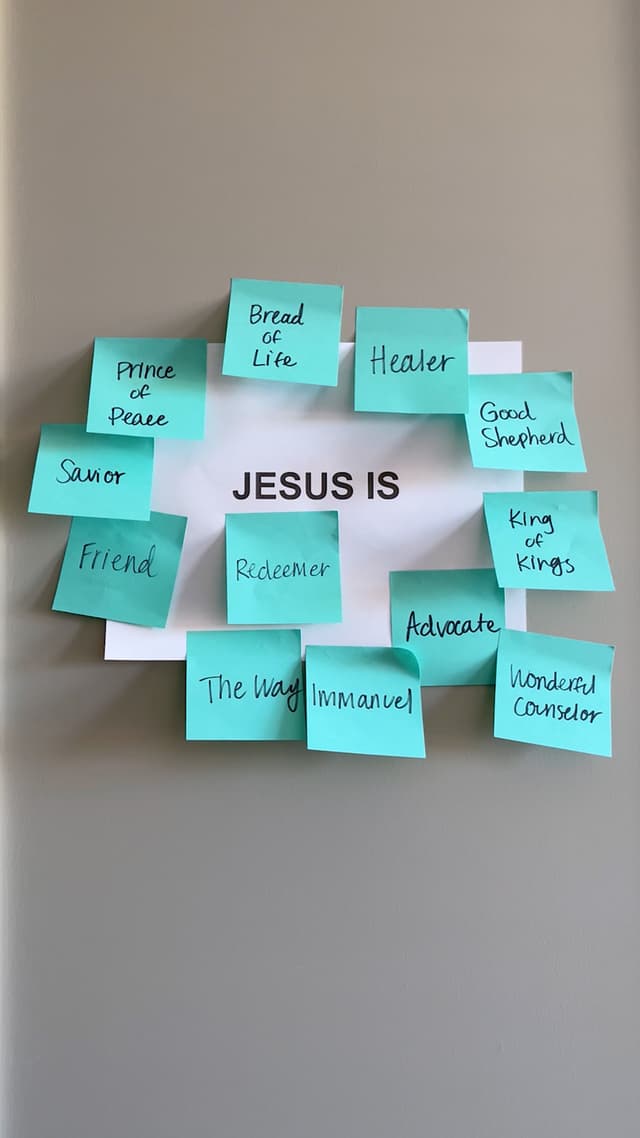 Bread
of
Life
Healer
Prince
of
Peace
Good
Shepherd
Savior
JESUS IS
King
of
Kings
Friend
Redeemer
Advocate
The Way
Immanuel
Wonderful
Counselor